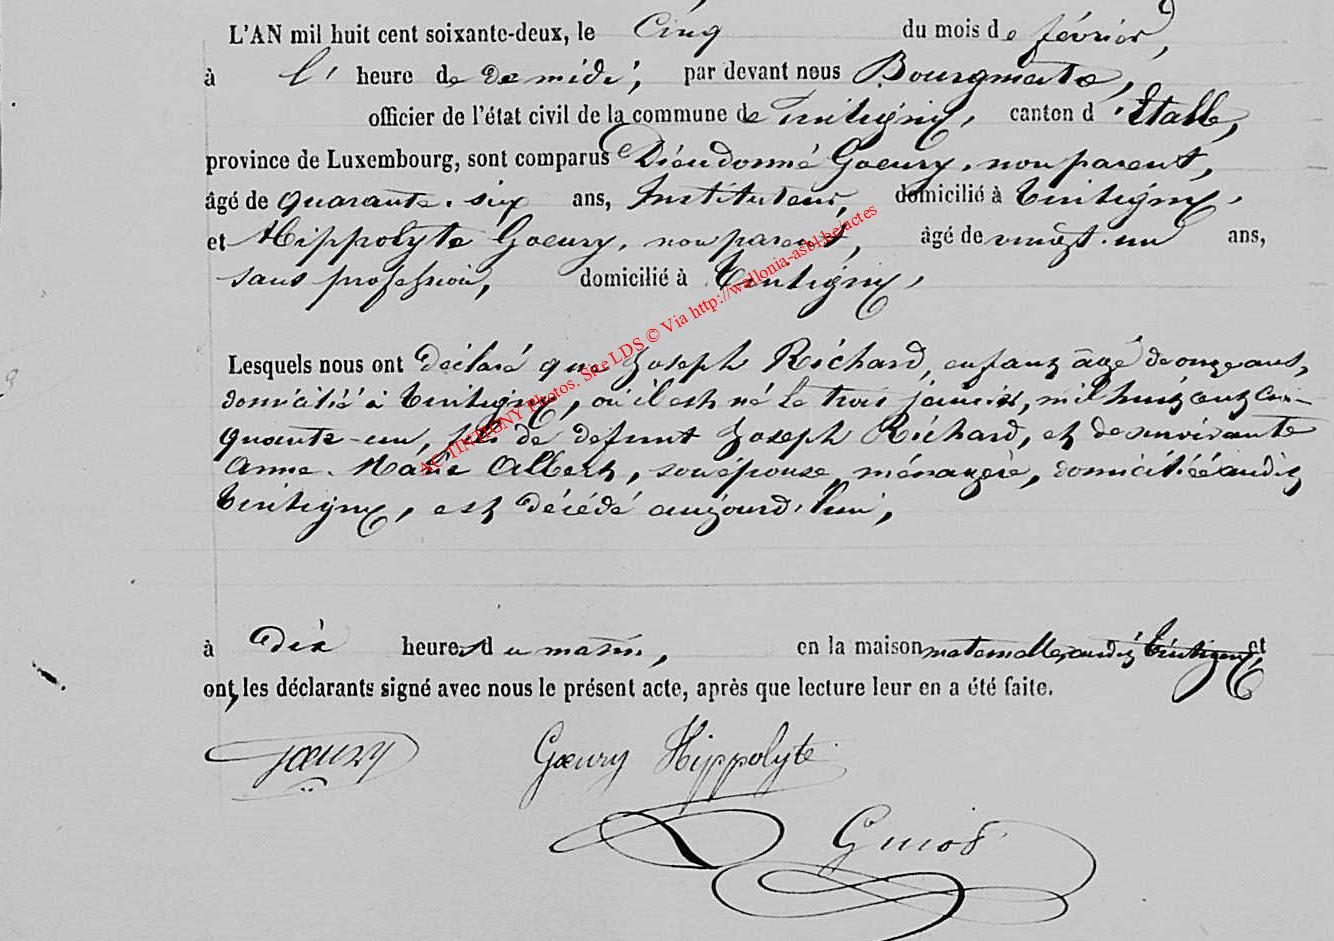 L'AN mil huit cent soixante-deux, le Cinq du mois de février,
à l' heure de de midi, par devant nous Bourgmestre,
officier de l'état civil de la commune de Tintigny, canton d'Etalle,
province de Luxembourg, sont comparus Dieudonné Goeury, non parent,
âgé de quarante-six ans, Instituteur, domicilié à Tintigny,
et Hippolyte Goeury, non parent, âgé de vingt-un ans,
sans profession, domicilié à Tintigny,
Lesquels nous ont déclaré que Joseph Richard, enfant âgé de onze ans,
domicilié à Tintigny, où il est né le trois janvier, mil huit cent cin-
quante-un, fils de défunt Joseph Richard, et de survivante
Anne-Marie Albert, son épouse, ménagère, domiciliée audit
Tintigny, est décédé aujourd'hui,
à dix heures du matin, en la maison maternelle, audit Tintigny, et
ont, les déclarants signé avec nous le présent acte, après que lecture leur en a été faite.
Goeury Goeury Hippolyte
Guiot
ACTINTIGNY Photos. Site LDS © Via http://wallonia-asbl.be/actes